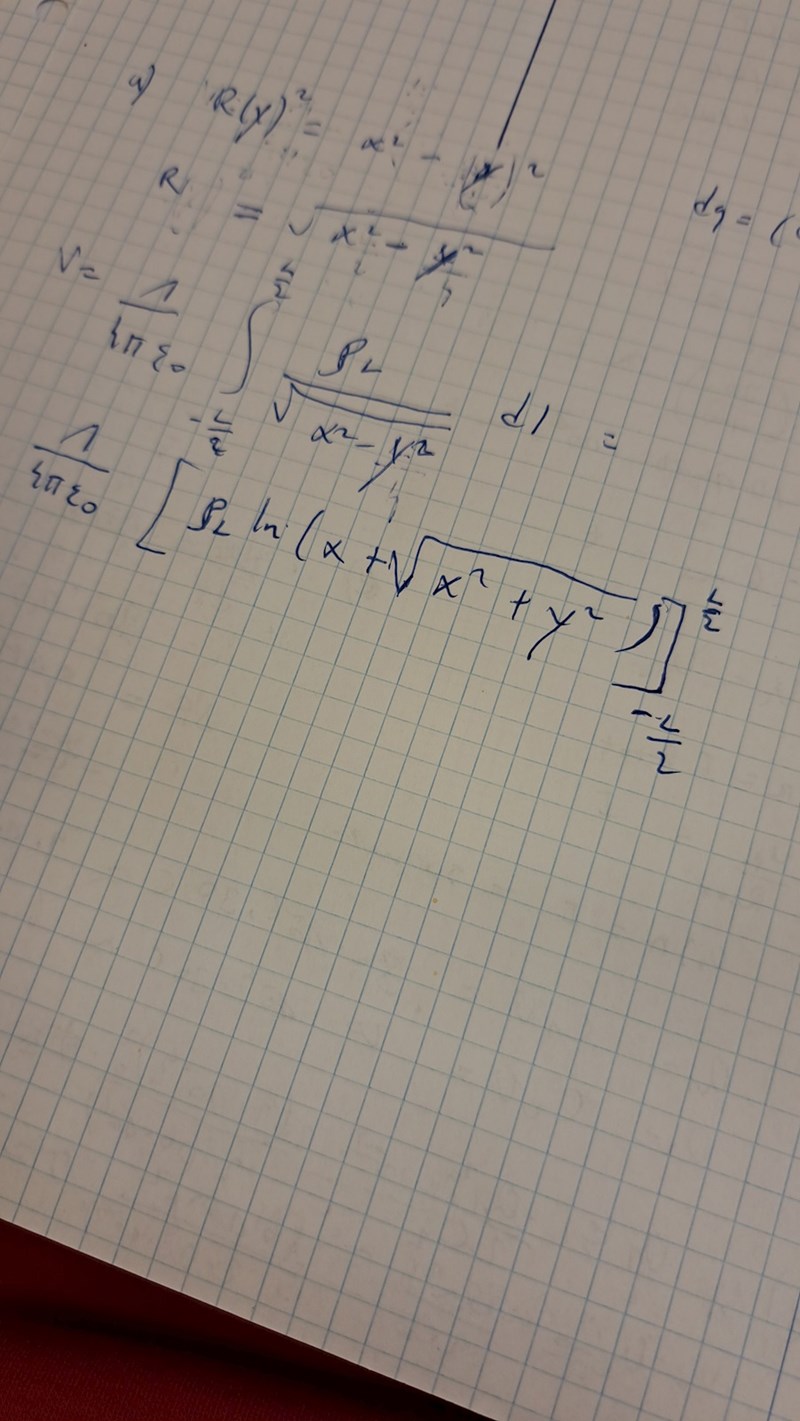 a) R(y)² = x² - (y)²
R = √(x² - y²)
dq = (
V = 1/(4πε₀) ∫_{-L/2}^{L/2} ρL/√(x² - y²) dl =
1/(4πε₀) [ρL ln(x + √(x² + y²))]_{-L/2}^{L/2}